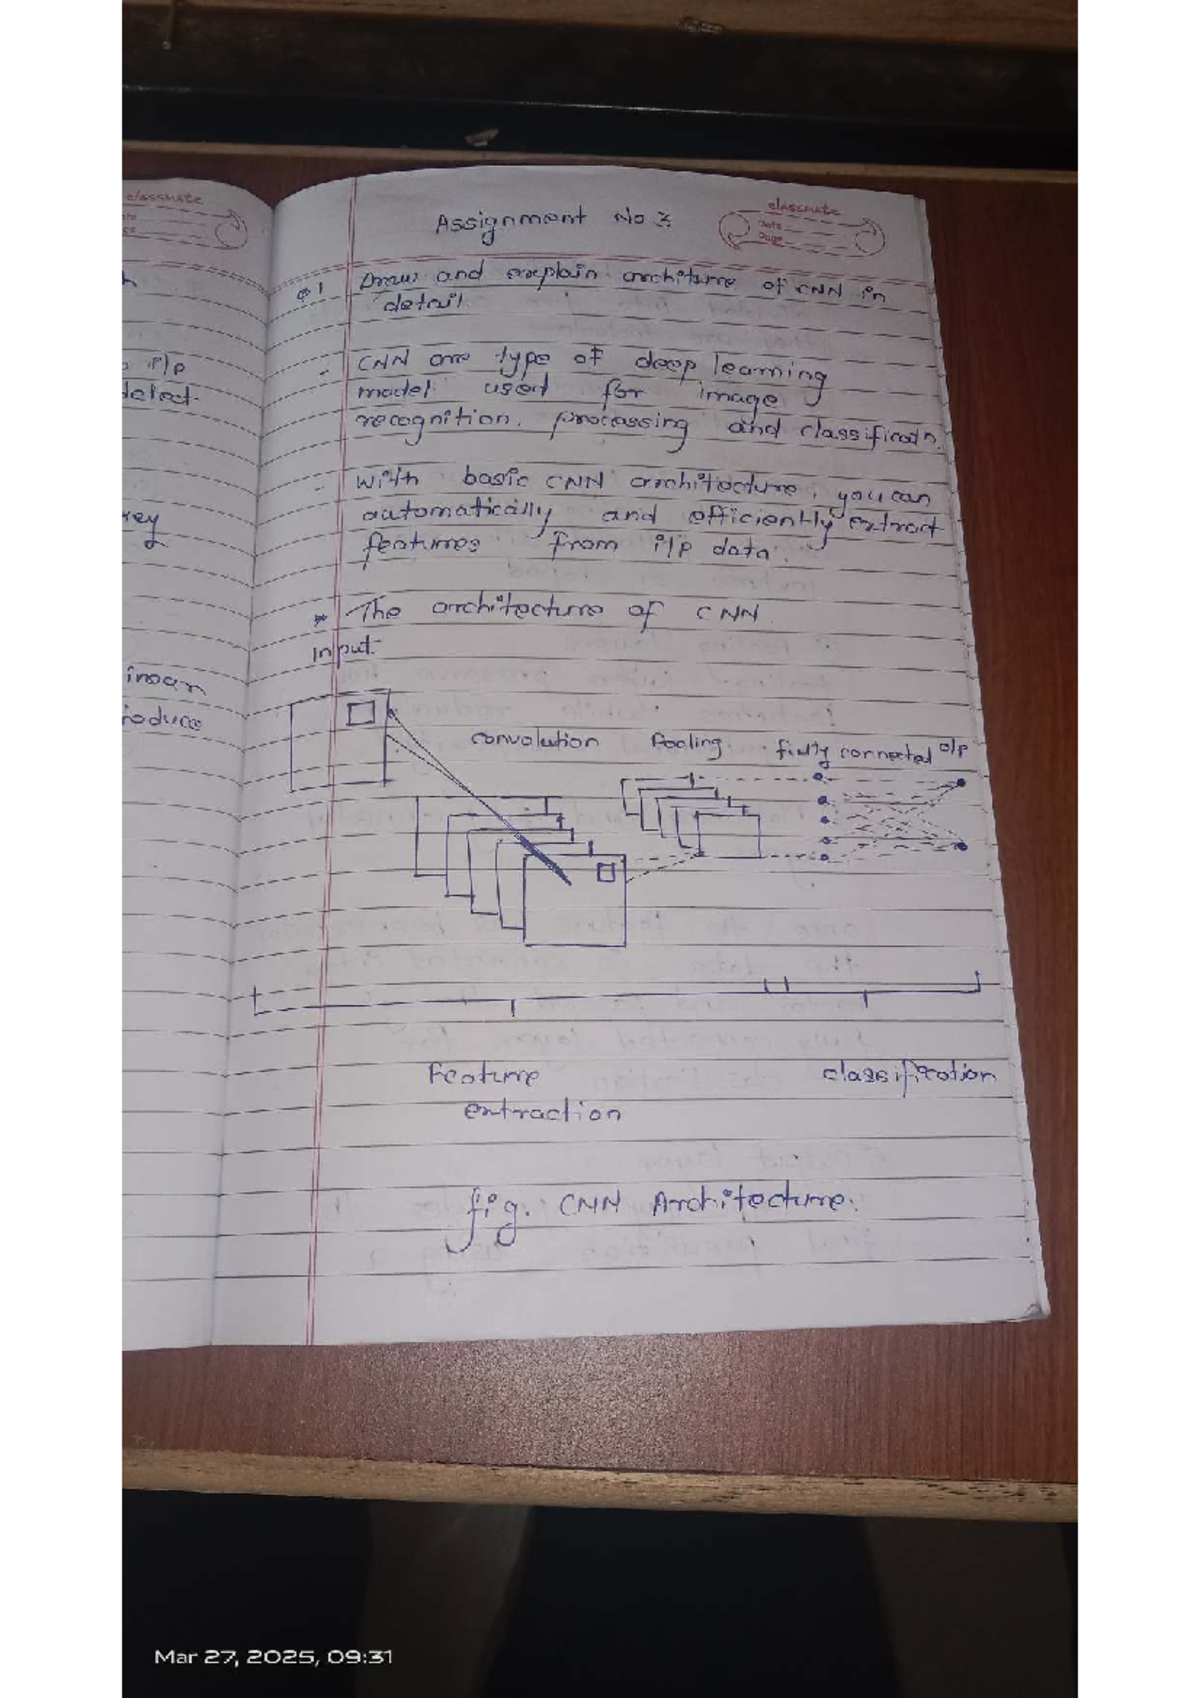 classmate
classmate
Date
Page
Assignment No 3.
Q 1 Draw and explain architure of CNN in
detail.
- CNN are type of deep learning
model used for image
recognition, processing and classificatn.
- With basic CNN architecture, you can
automatically and efficiently extract
features from i/p data.
* The architecture of CNN
input
convolution Pooling fully connected o/p
Feature classification
extraction
fig. CNN Architecture.
i/p
detect-
key
Mar 27, 2025, 09:31